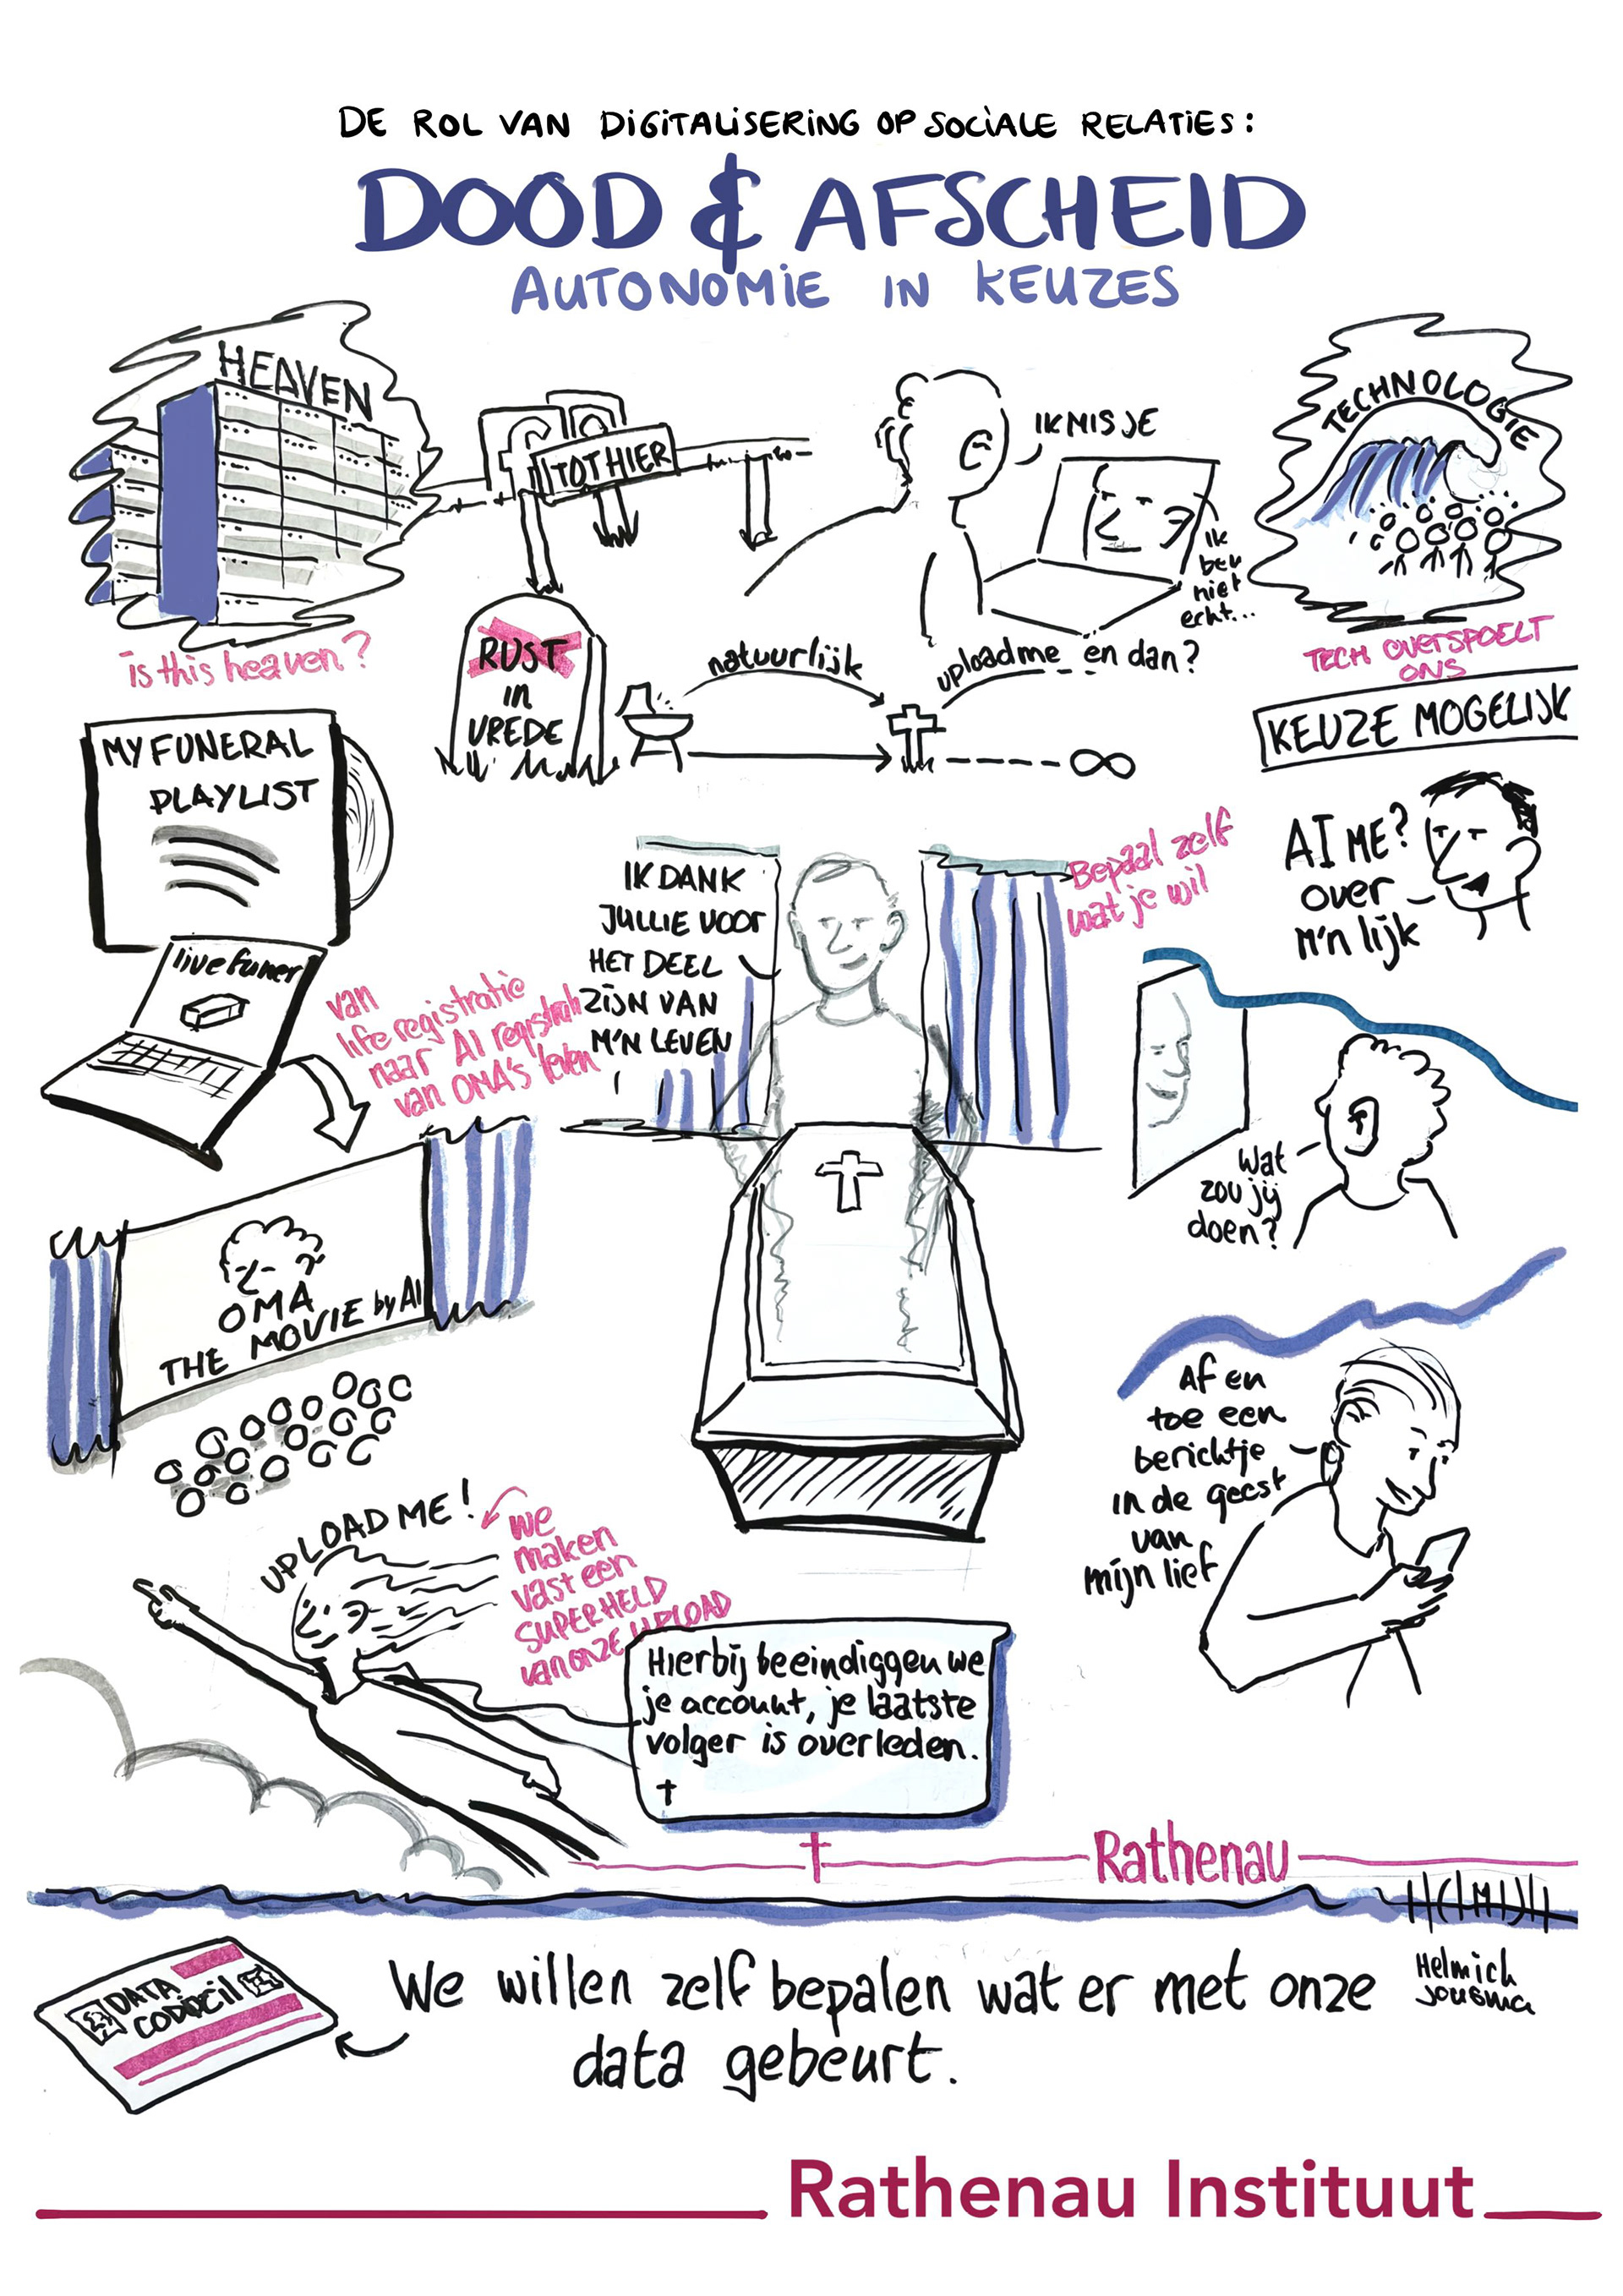 DE ROL VAN DIGITALISERING OP SOCIALE RELATIES:
DOOD & AFSCHEID
AUTONOMIE IN KEUZES
HEAVEN
is this heaven?
f
TOT HIER
RUST
in
VREDE
IK MIS JE
Ik
ben
niet
echt...
natuurlijk
uploadme en dan?
∞
TECHNOLOGIE
TECH OVERSPOELT
ONS
KEUZE MOGELIJK
MY FUNERAL
PLAYLIST
live funer
van
life registratie
naar AI registratie
van OMA's leven
OMA
THE MOVIE by AI
IK DANK
JULLIE VOOR
HET DEEL
ZIJN VAN
M'N LEVEN
Bepaal zelf
wat je wil
AI ME?
over
m'n lijk
Wat
zou jij
doen?
Af en
toe een
berichtje
in de geest
van
mijn lief
UPLOAD ME!
We
maken
vast een
SUPERHELD
van onze UPLOAD
Hierbij beeindiggen we
je account, je laatste
volger is overleden.
†
Rathenau
Helmich
Jousma
DATA
CODICIL
We willen zelf bepalen wat er met onze
data gebeurt.
Rathenau Instituut